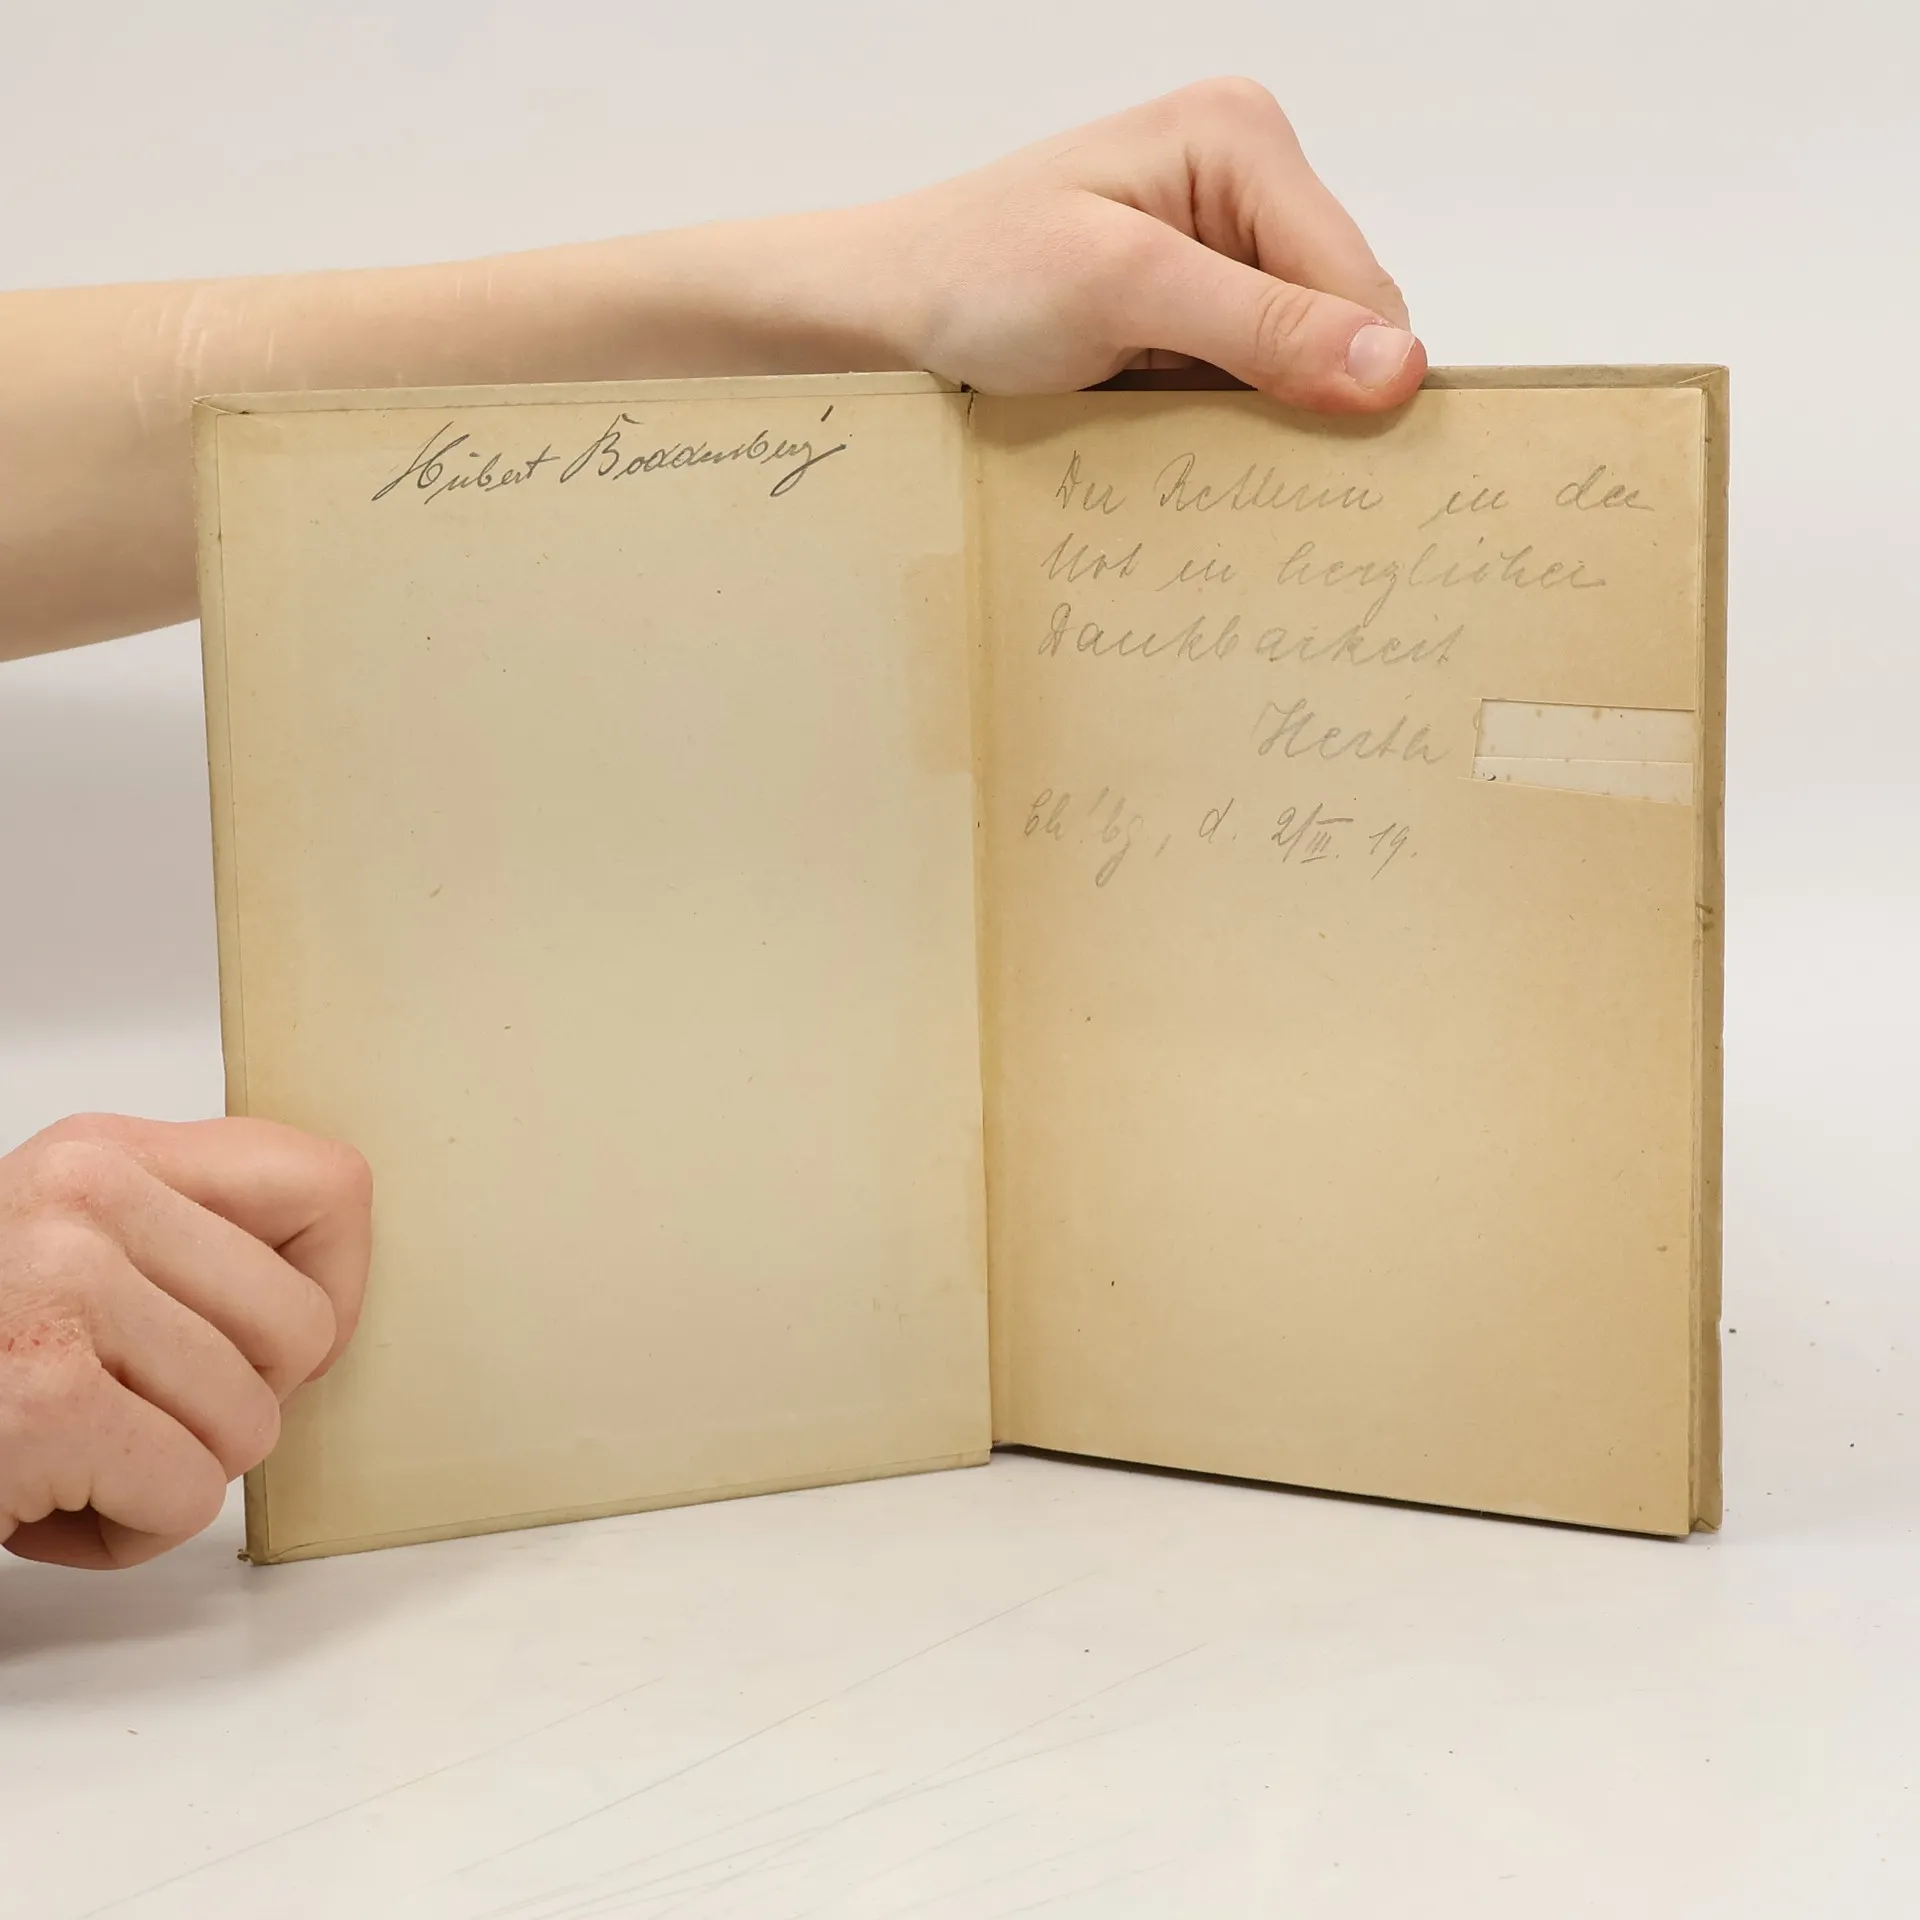 Hubert Boddenberg
Der Retterin in der
Not in herzlicher
Dankbarkeit
Herth
d. 2/III. 19.